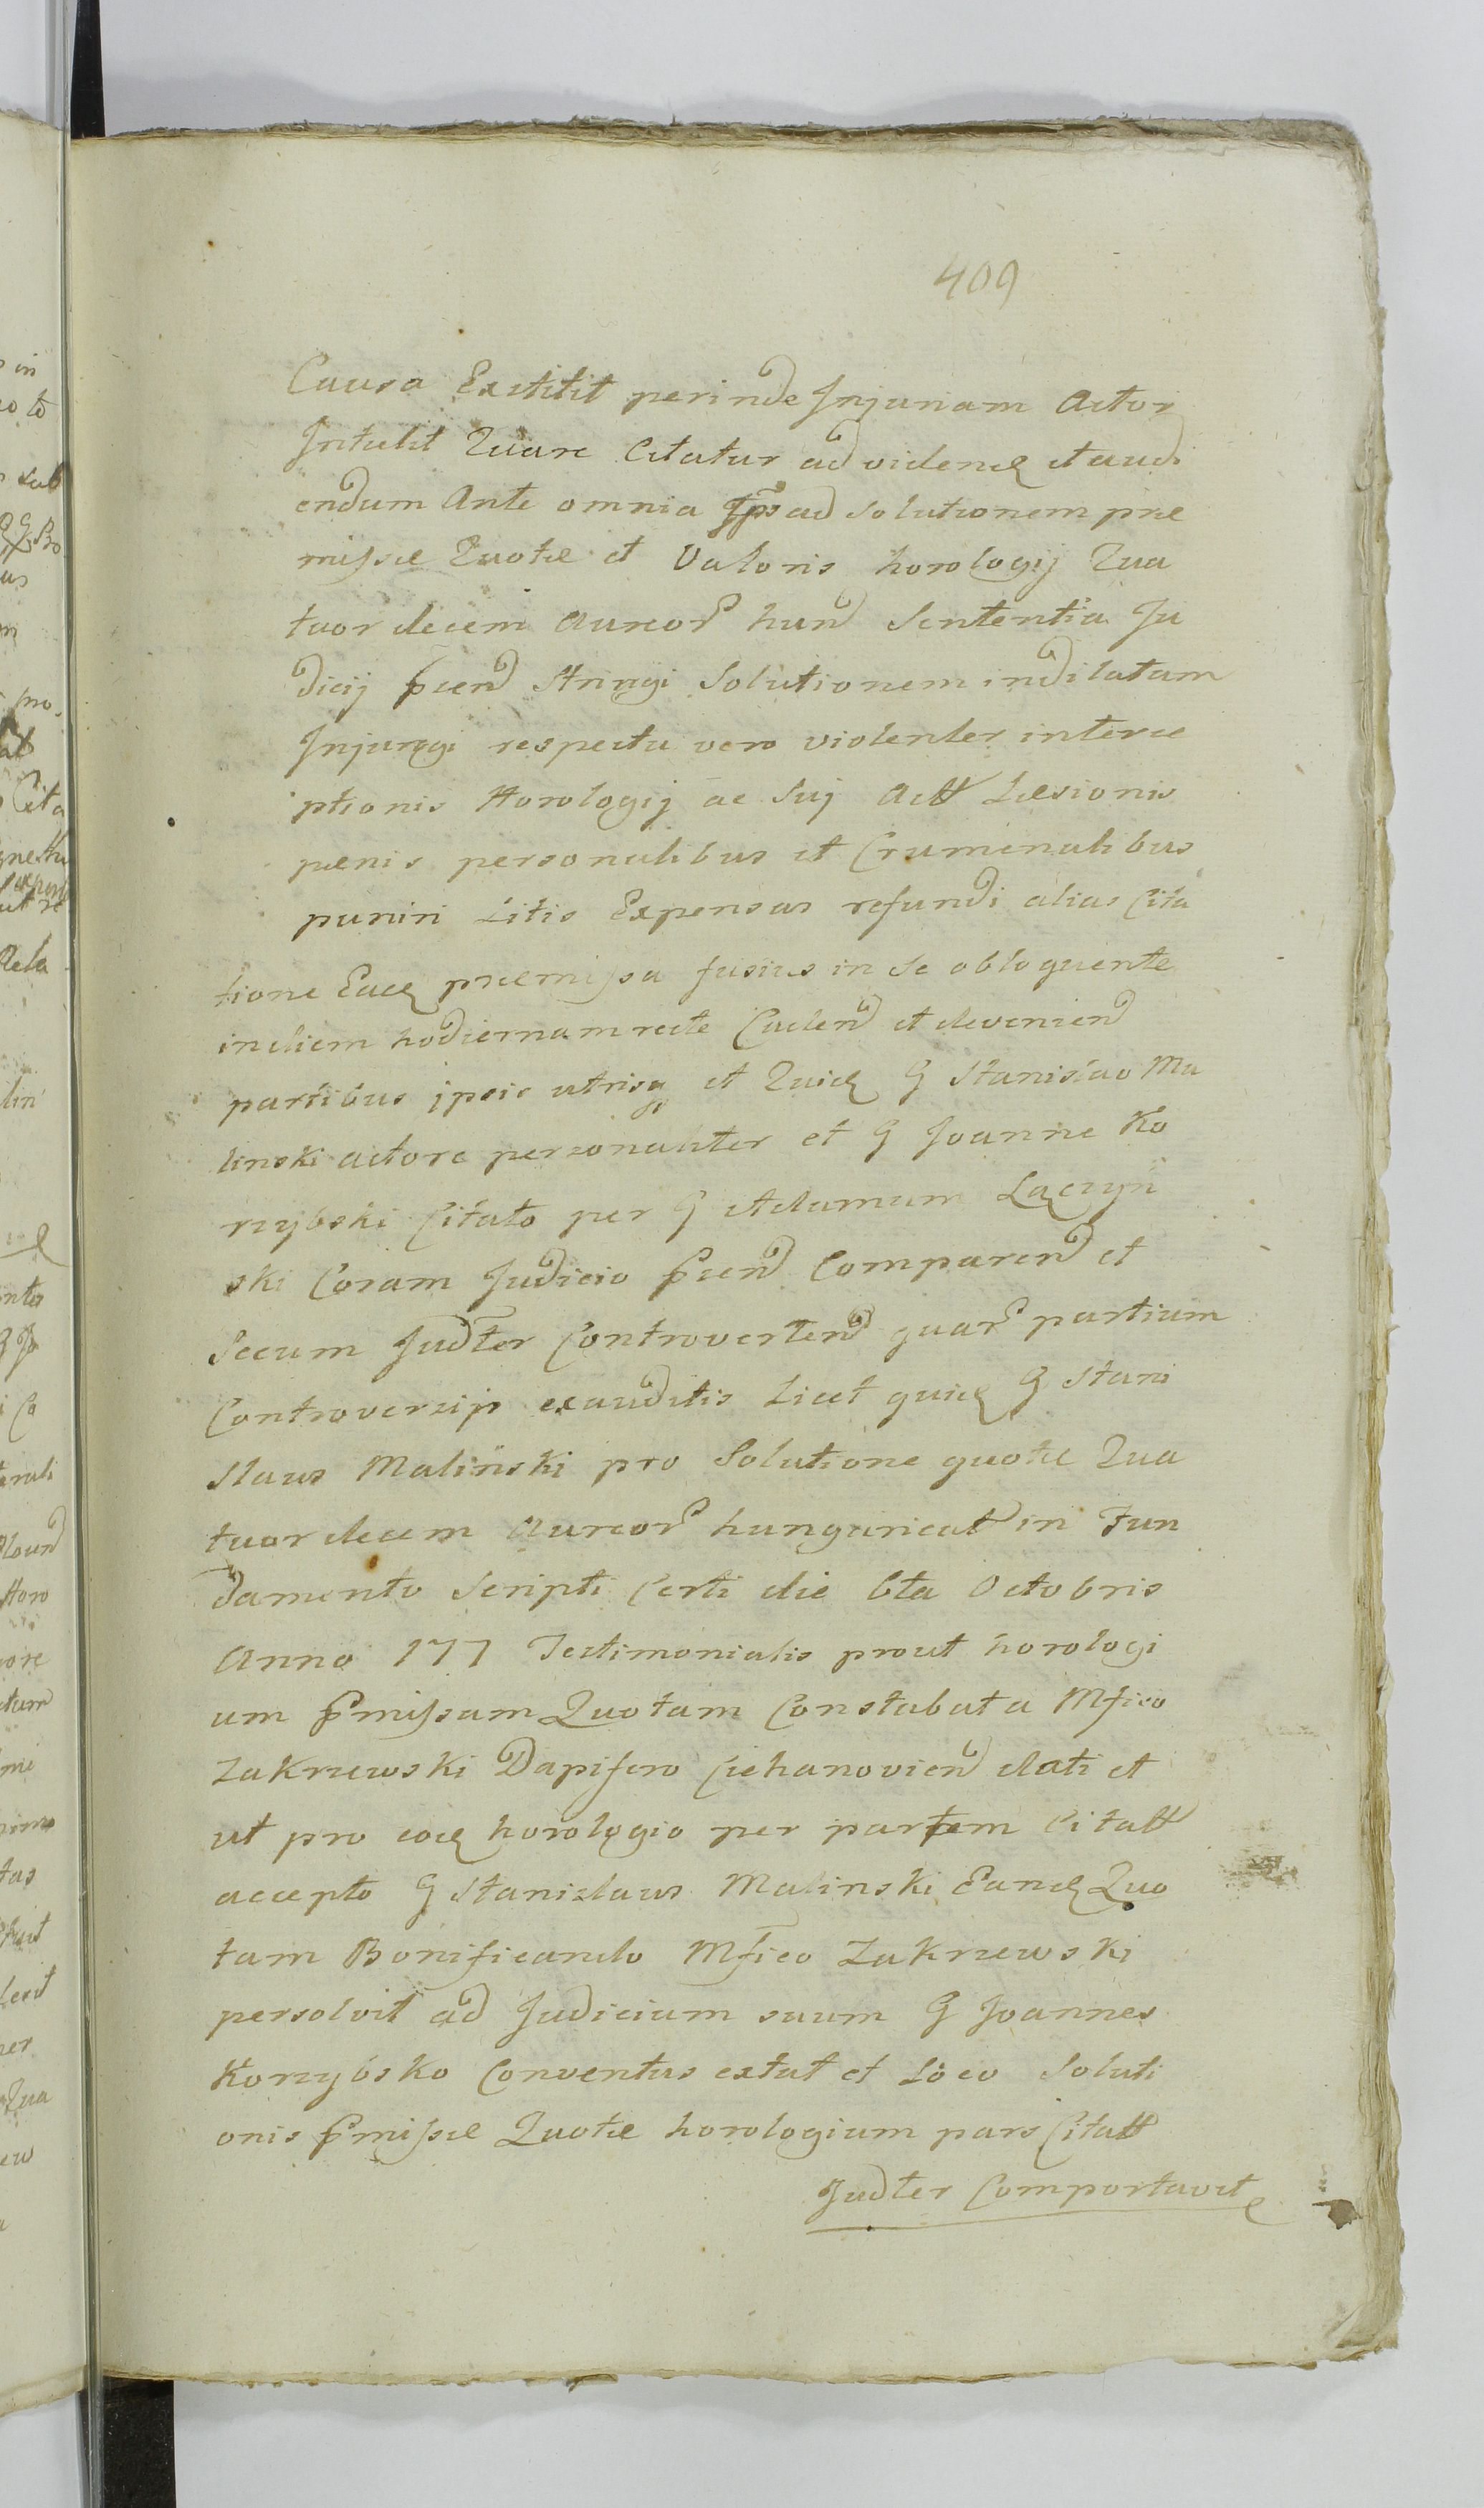 409
Causa Extitit perinde Injuriam Actor
Intulit Quare Citatur ad videndũ et audi
endum Ante omnia Ips ad Solutionem præ
missæ Quotæ et Valoris horologij Qua
tuordecem Aureor hun Sententia Ju
dicij præn Stringi Solutionem indilatam
Injungi respectu vero violenter interce
ptionis Horologij ac Suj Act Læsionis
pænis personalibus et Crumenalibus
puniri Litis Expensas refundi alias Cita
tione Eadẽ præmissa fusius in Se obloquente
in diem hodiernam recte Caden et devenien
partibus ipsis utrisq et Quidẽ G Stanislao Ma
linski actore personaliter et G Joanne Ko
rzybski Citato per G Adamum Łączyń
ski Coram Judicio præn Comparen et
Secum Judter Controverten quar partium
Controversijs exauditis Licet quidẽ G Stani
slaus Maliński pro Solutione quotæ Qua
tuordecem Aureor hungaricat in Fun
damento Scripti Certi die 6ta Octobris
Anno 177 Testimonialis prout horologi
um pmissam Quotam Constabat a Mfico
Zakrzewski Dapifero Ciehanovien dati et
ut pro eodẽ horologio per partem Citatt
accepto G Stanislaus Malinski Eandẽ Quo
tam Bonificando Mfico Zakrzewski
persolvit ad Judicium suum G Joannes
Korzybsko Conventus extat et Loco Soluti
onis pmissæ Quotæ horologium pars Citatt
Judter Comportavit